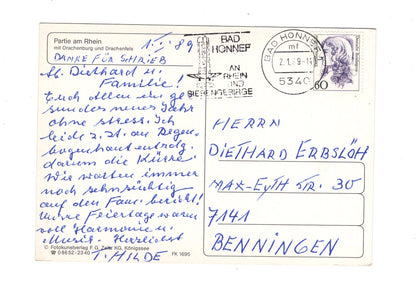 Partie am Rhein
mit Drachenburg und Drachenfels
1.I.89
DANKE FÜR SCHRIEB
Lb. Diethard u.
Familie!
Euch allen ein ge-
sundes neues Jahr
ohne stress. Ich
leide z. Zt. an Regen-
bogenhautentzdg.
darum die Kürze.
Wir warten immer
noch sehnsüchtig
auf den Fam. bericht!
Unsere Feiertage waren
voll Harmonie u.
Musik. Herzlichst
T. HILDE
© Fotokunstverlag F. G. Zeitz KG, Königssee
☎ 08652-2340
FK 1695
BAD
HONNEF
AN
RHEIN
UND
SIEBENGEBIRGE
BAD HONNEF 1
mf
2.1.89-1
5340
60
HERRN
DIETHARD ERBSLÖH
MAX-EYTH STR. 30
7141
BENNINGEN